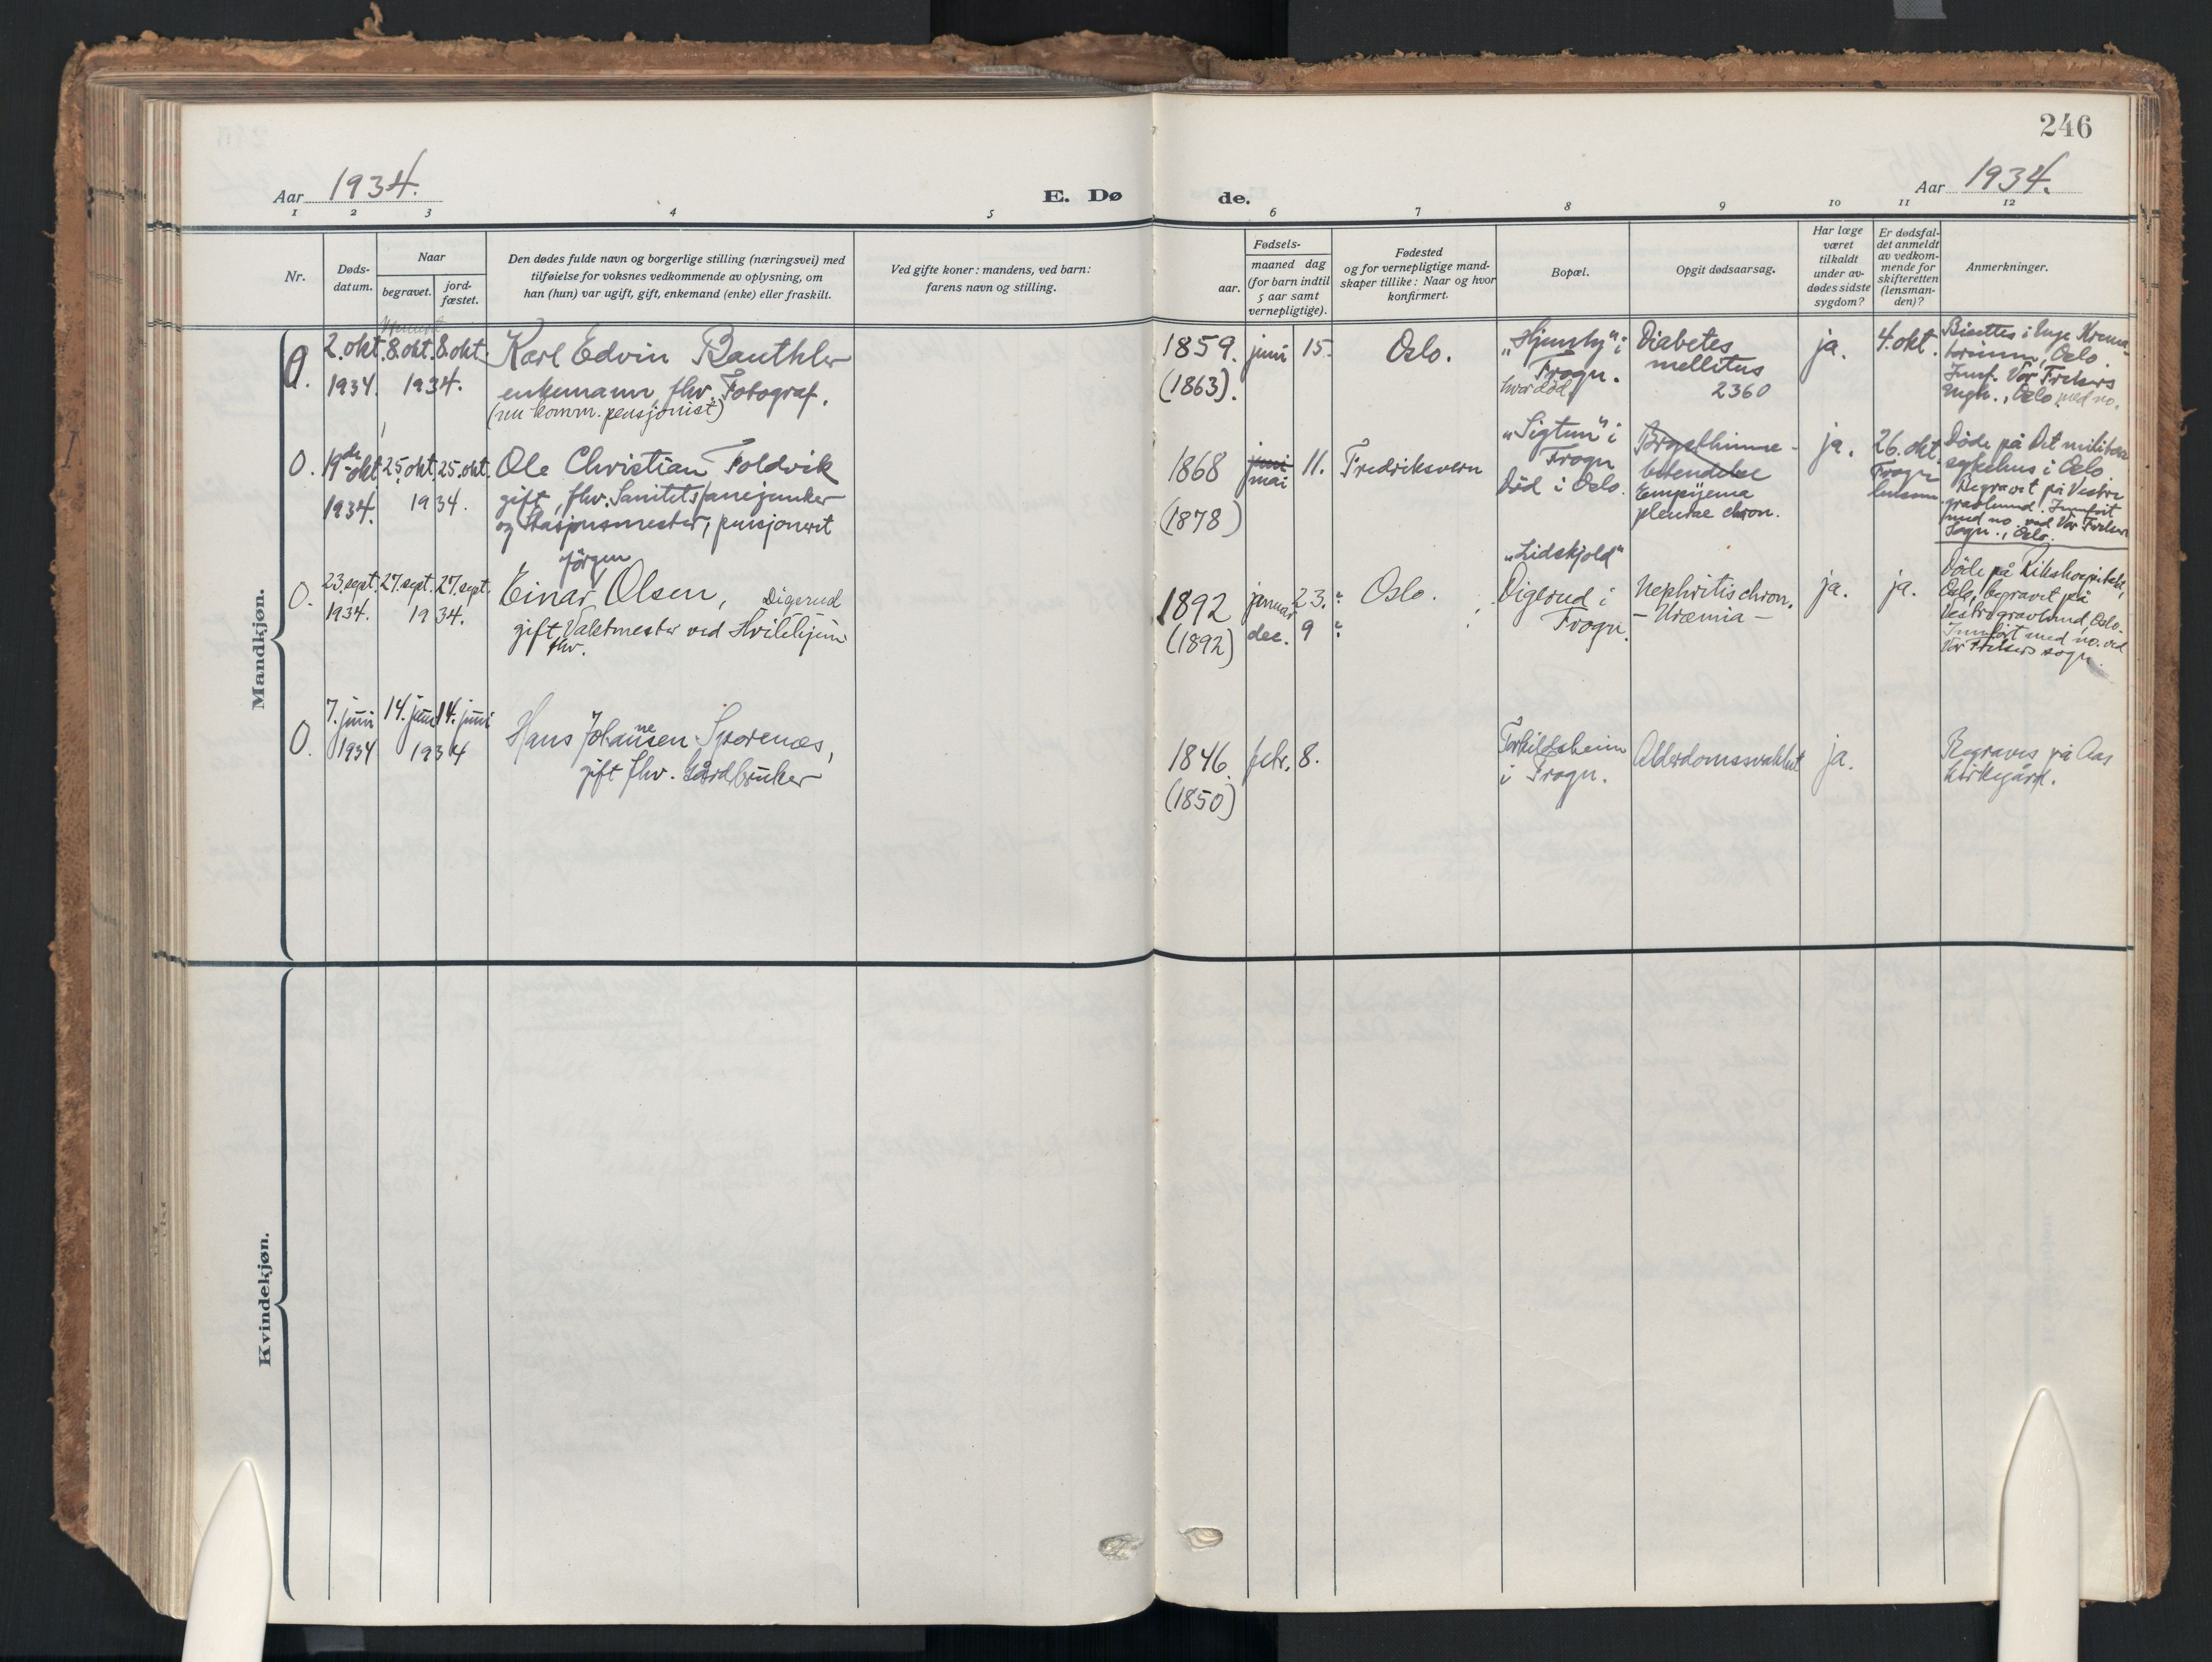 246
Aar 1934.
E. Døde.
Aar 1934.
1 2 3 4 5 6 7 8 9 10 11 12
Nr.
Døds-
datum.
Naar
begravet.
jord-
fæstet.
Den dødes fulde navn og borgerlige stilling (næringsvei) med
tilføielse for voksnes vedkommende av oplysning, om
han (hun) var ugift, gift, enkemand (enke) eller fraskilt.
Ved gifte koner: mandens, ved barn:
farens navn og stilling.
Fødsels-
aar.
maaned dag
(for barn indtil
5 aar samt
vernepligtige).
Fødested
og for vernepligtige mand-
skaper tillike: Naar og hvor
konfirmert.
Bopæl.
Opgit dødsaarsag.
Har læge
været
tilkaldt
under av-
dødes sidste
sygdom?
Er dødsfal-
det anmeldt
av vedkom-
mende for
skifteretten
(lensman-
den)?
Anmerkninger.
Mandkjøn.
0.
2. okt.
1934.
8. okt. 8. okt.
1934.
Karl Edvin Bauthler
enkemann, fhv. Fotograf.
(nu komm. pensjonist)
1859.
(1863).
juni 15.
Oslo.
"Hjemly" i
Frogn.
hvor død
Diabetes
mellitus
2360
ja.
4. okt.
Bisettes i Krema-
torium, Oslo.
Innf. Vår Frelsers
, Oslo med no.
0.
19de okt
1934.
25. okt. 25. okt.
1934.
Ole Christian Foldvik
gift, fhv. Sanitetsfanejunker
og Stasjonsmester, pensjonert
1868
(1878)
juni
mai
11.
Fredriksvern
"Sigtun" i
Frogn
Død i Oslo.
Brysthinne-
betendelse
Empyema
pleurae chron.
ja.
26. okt.
Frogn
lensm.
Døde på Det militære
sykehus i Oslo
Begravet på Vestre
gravlund. Innført
med no. ved Vår Frelsers
Sogn., Oslo.
0.
23. sept.
1934.
27. sept. 27. sept.
1934.
Jörgen
Einar Olsen, Digerud
gift, Vaktmester ved Hvilehjem
fhv.
1892
(1892)
januar 23. ?
dec. 9 ?
Oslo.
"Lidskjold"
Digerud i
Frogn.
Nephritis chron.
– Uræmia –
ja.
ja.
Døde på Rikshospitalet,
Oslo, begravet på
Vestre gravlund, Oslo.
Innført med no. ved
Vår Frelsers sogn.
0.
7. juni
1934
14. juni 14. juni
1934
Hans Johannesen Sporenæs,
gift fhv. Gårdbruker
1846.
(1850)
febr. 8.
Torkildsheim
i Frogn.
Alderdomssvakhet
ja.
Begraves på Aas
kirkegård.
Kvindekjøn.